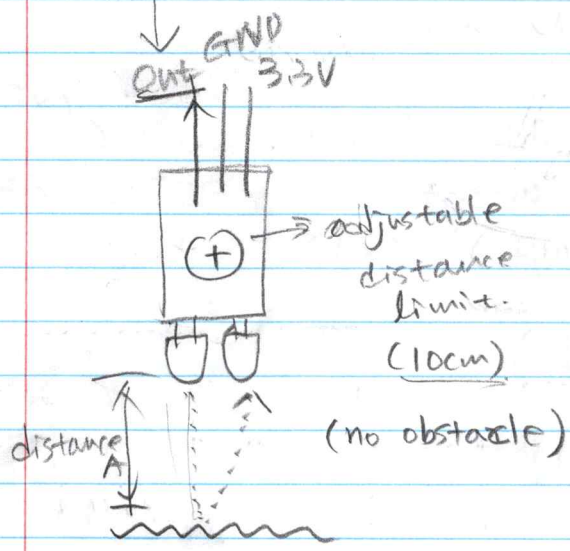 Out GND 3.3V
+
adjustable
distance
limit.
(10cm)
(no obstacle)
distance
A